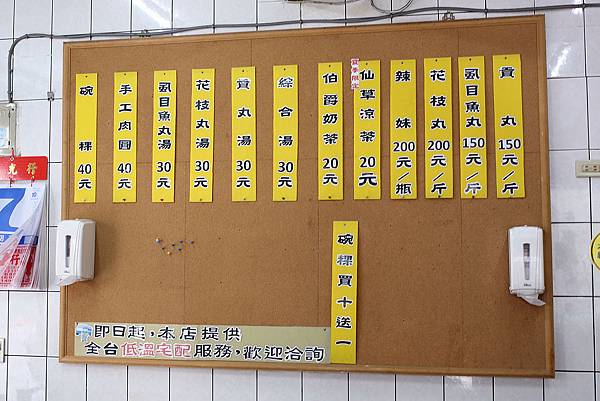 碗粿 40元
手工肉圓 40元
虱目魚丸湯 30元
花枝丸湯 30元
貢丸湯 30元
綜合湯 30元
伯爵奶茶 20元
夏季限定
仙草涼茶 20元
辣妹 200元/瓶
花枝丸 200元/斤
虱目魚丸 150元/斤
貢丸 150元/斤
碗粿買十送一
即日起,本店提供
全台低溫宅配服務,歡迎洽詢